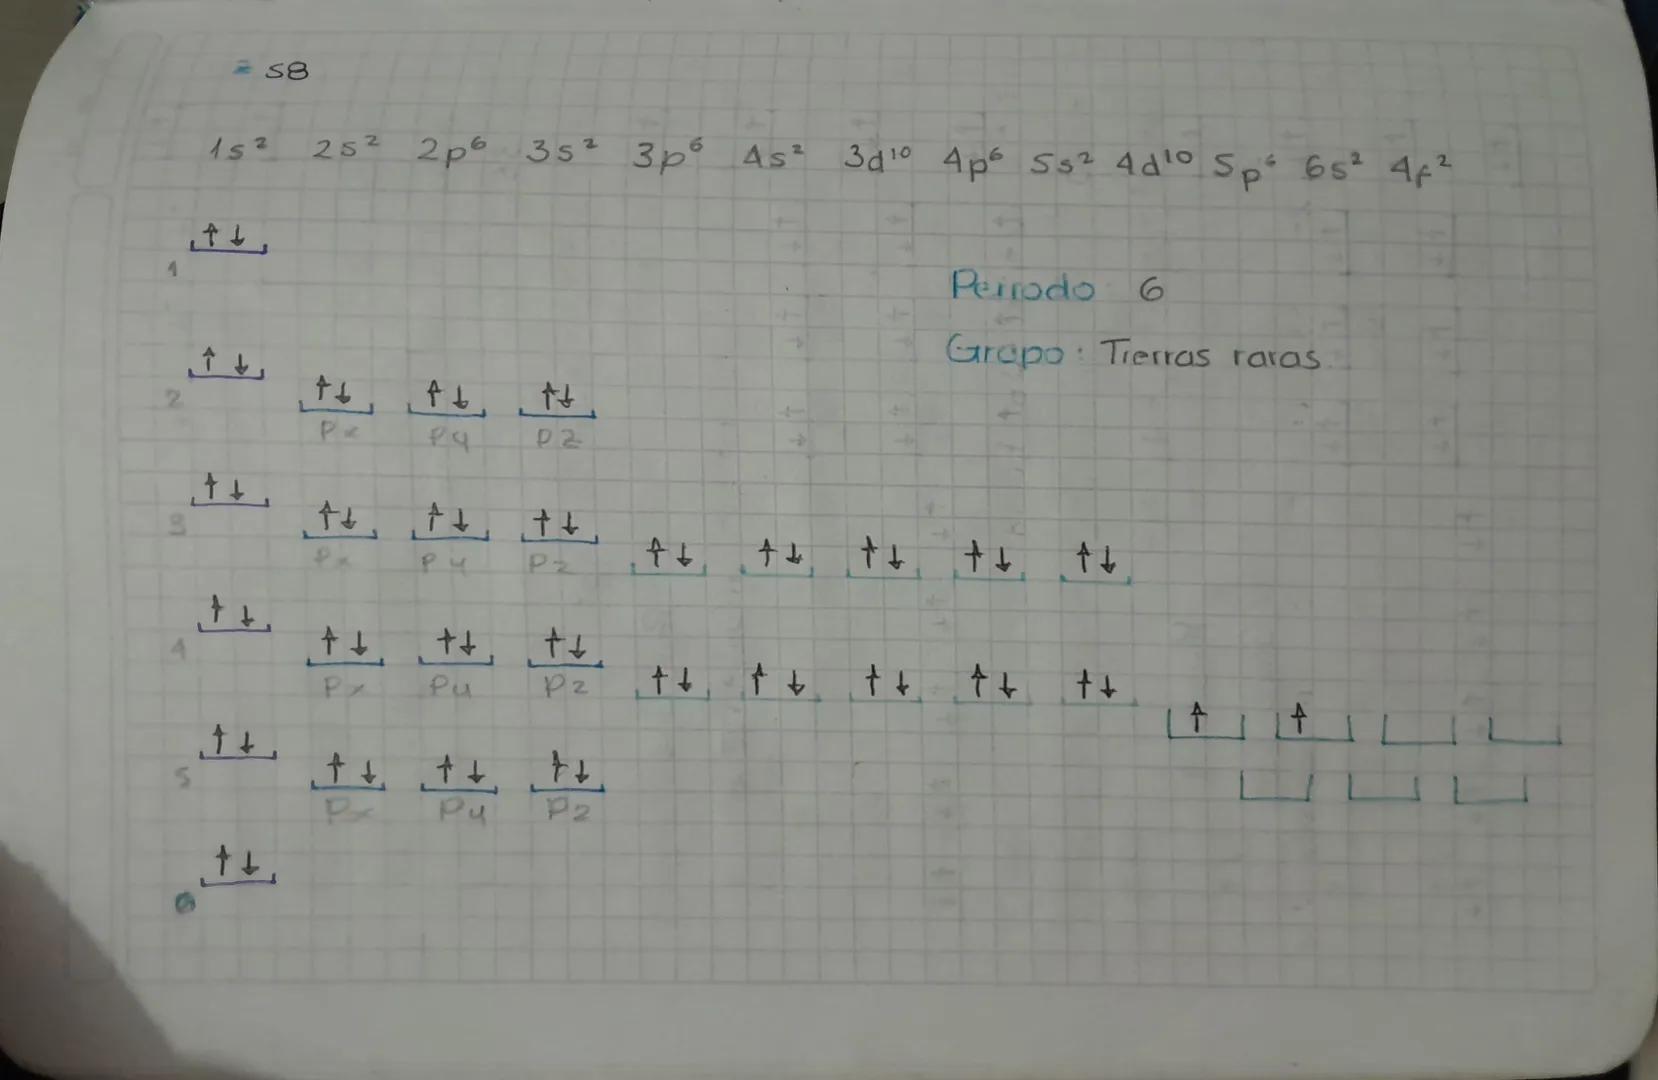 = 58
1s² 2s² 2p⁶ 3s² 3p⁶ 4s² 3d¹⁰ 4p⁶ 5s² 4d¹⁰ 5p⁶ 6s² 4f²
↑↓
1
Periodo 6
Grupo: Tierras raras
↑↓ ↑↓ ↑↓ ↑↓
2 Px Py Pz
↑↓ ↑↓ ↑↓ ↑↓ ↑↓ ↑↓ ↑↓ ↑↓ ↑↓
3 Px Py Pz
↑↓ ↑↓ ↑↓ ↑↓ ↑↓ ↑↓ ↑↓ ↑↓ ↑↓ ↑ ↑
4 Px Py Pz
↑↓ ↑↓ ↑↓ ↑↓
5 Px Py Pz
↑↓
6